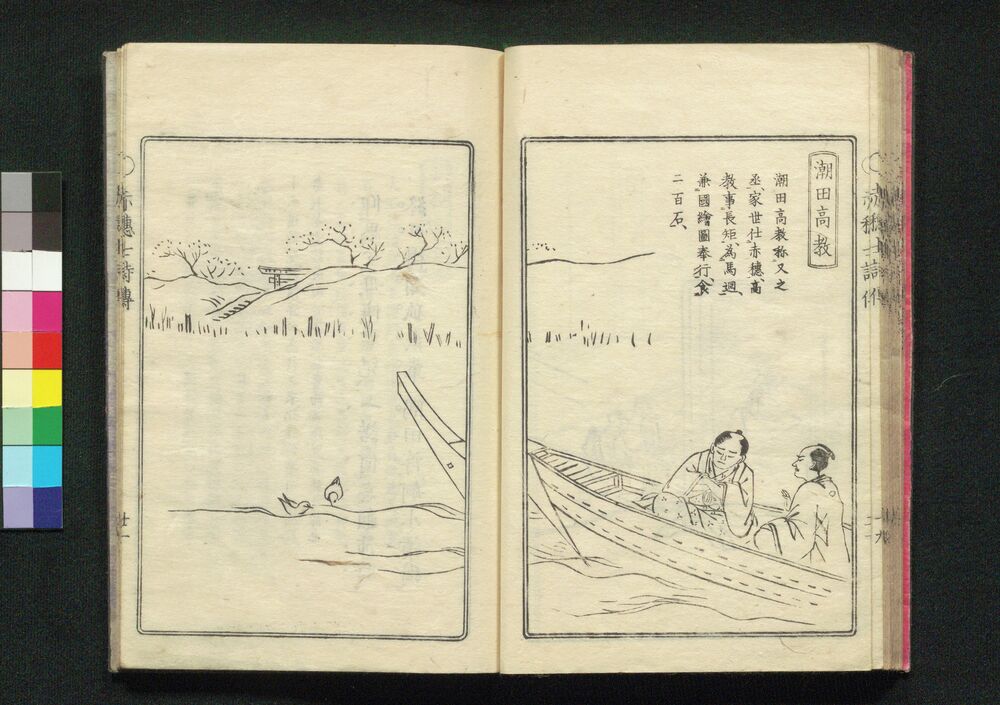 潮田高教
潮田高教称又之
丞家世仕赤穂高
教事長矩為馬廻
兼國繪圖奉行食
二百石
赤穂七詩傳
廿一